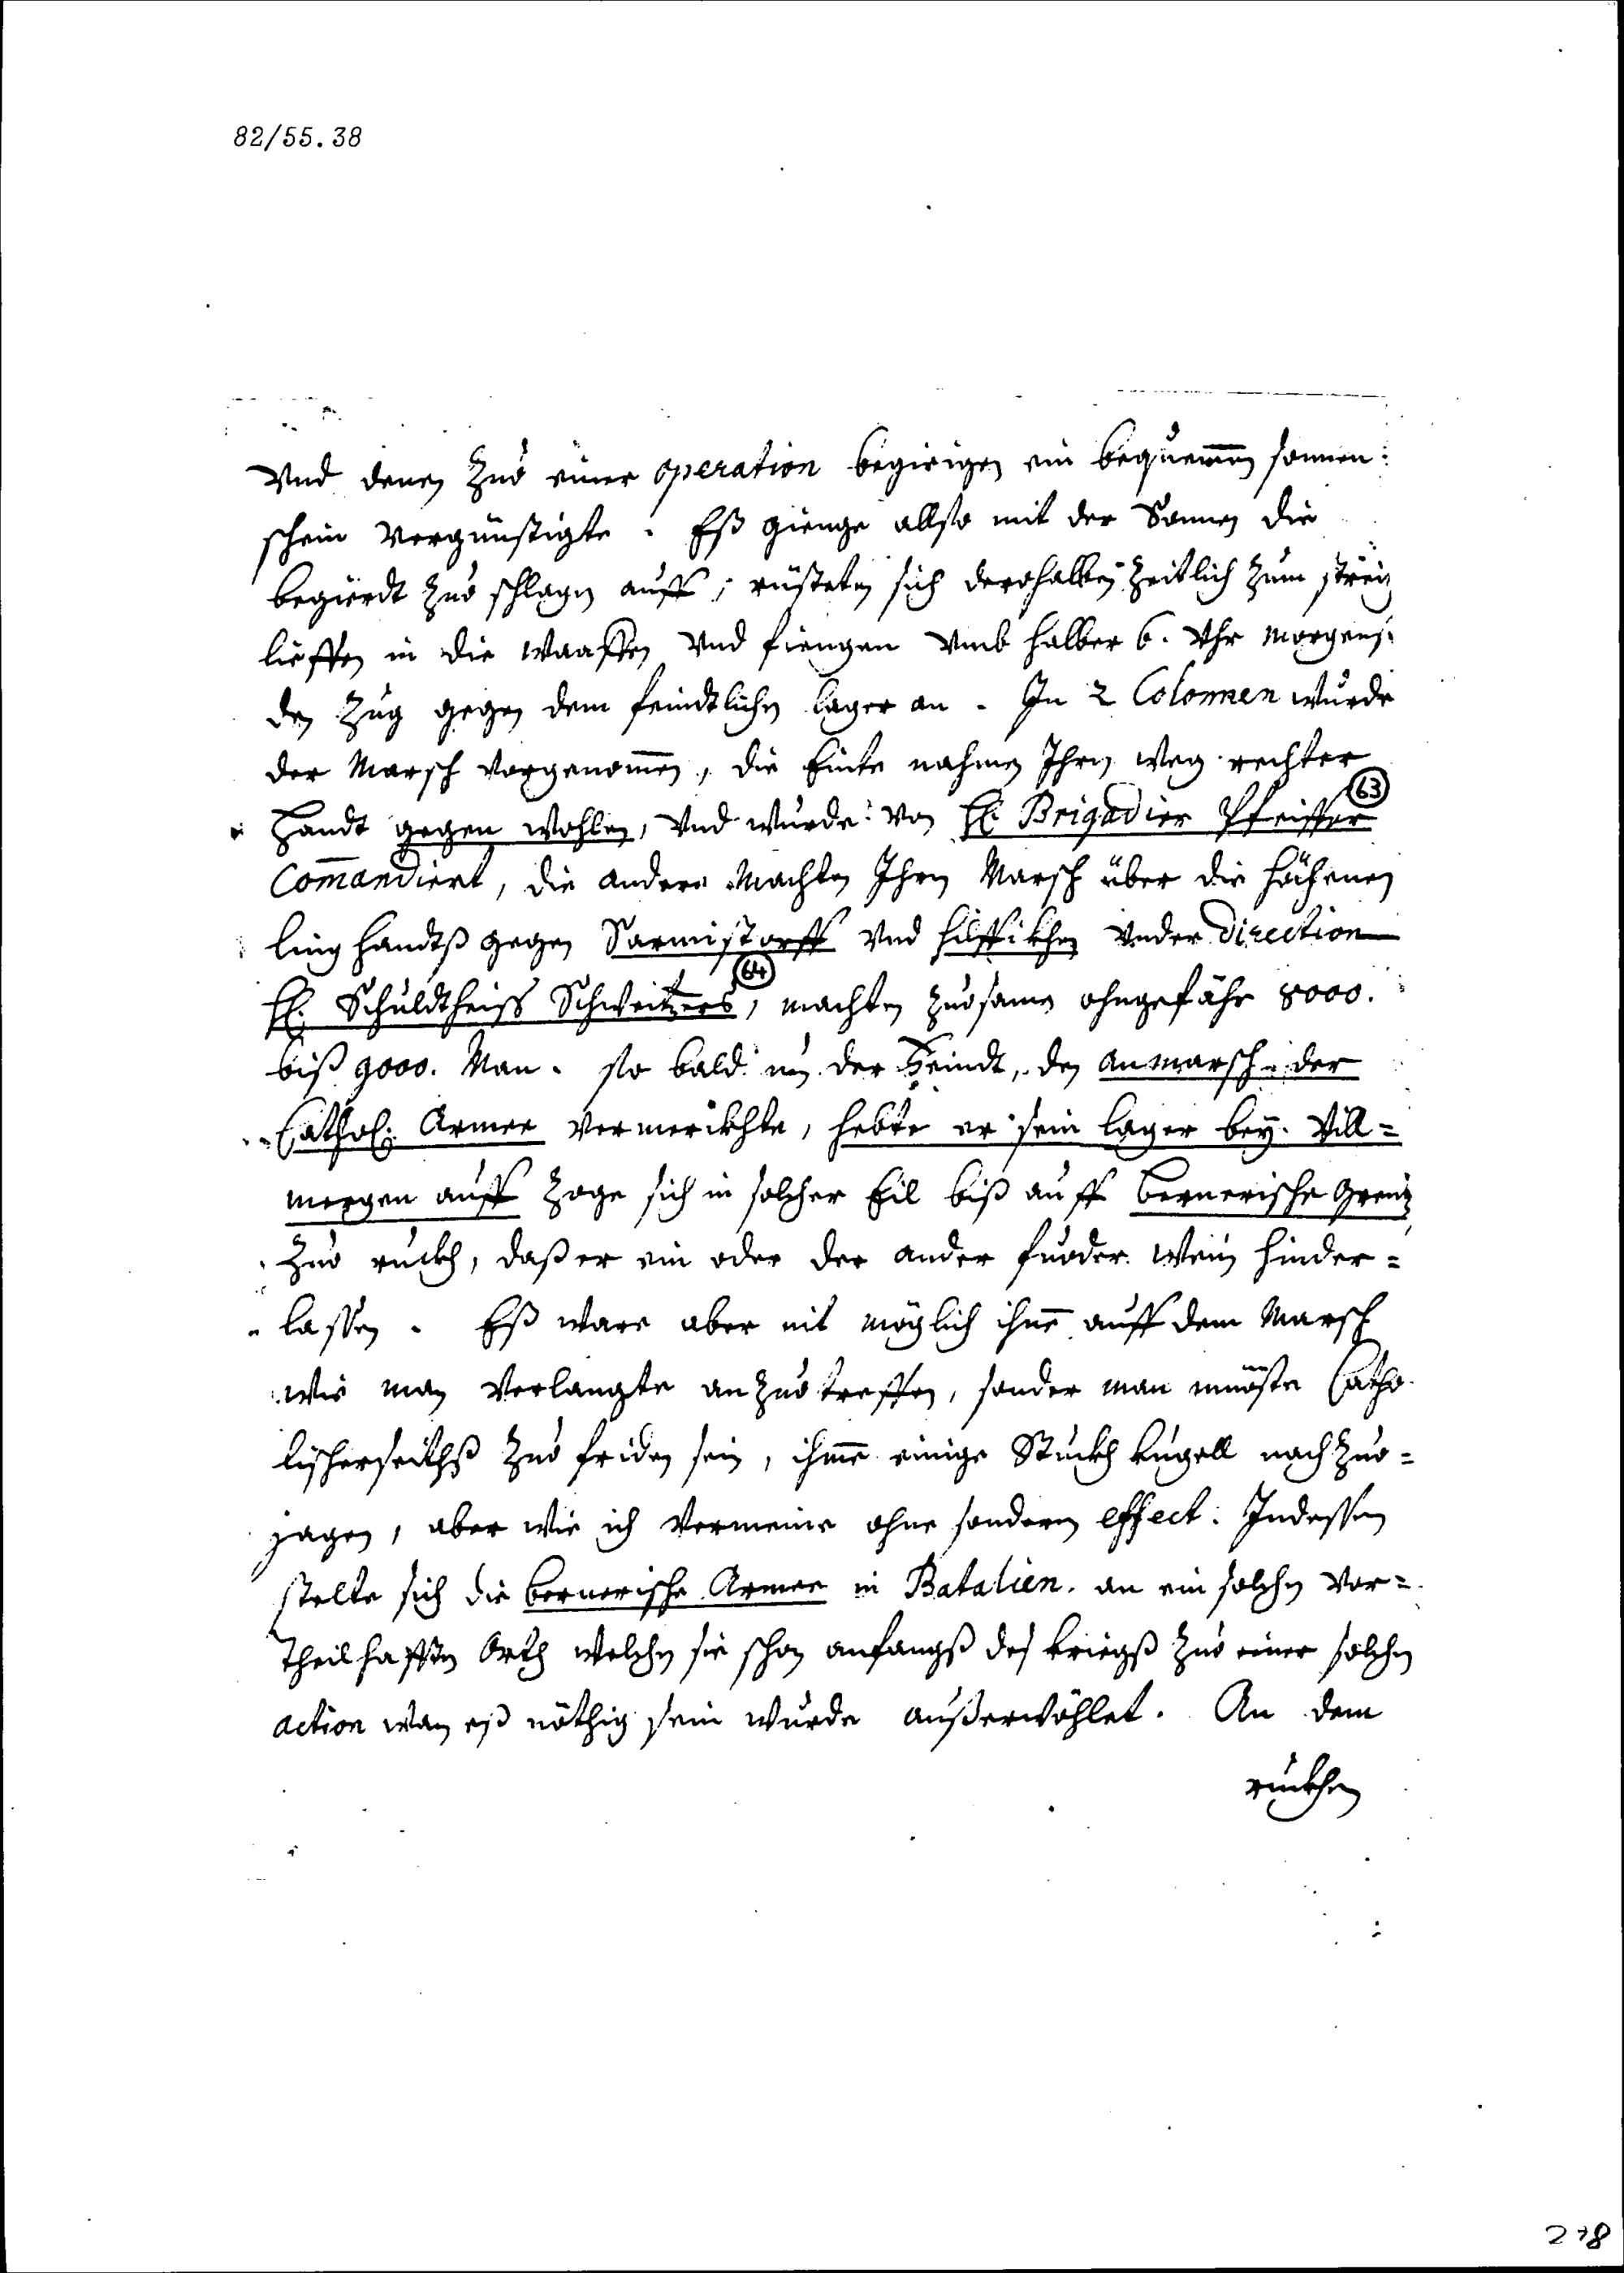 82/55.38
Vnd denen Zuo einer operation begirigen ein bequemmen sonnen:
schein vergünstigte. Eß gienge allso mit der Sonnen die
begierdt Zuo schlagen auff, rüsteten sich derohalben Zeitlich Zum streiz
lieffen in die Waaffen Vnd fiengen Vmb halber 6. Vhr morgens
den Zug gegen dem feindtlichen lager an. In 2 Colonnen wurde
der Marsch vorgenomen, die Einte nahmen Ihren weg rechter
Handt gegen Wohlen, Vnd wurde von H: Brigadier Pfeiffer
63
Comandiert, die andere Machten Ihren Marsch über die höchenen
ling handtß gegen Sarmistorff Vnd hilffikhen Vnder direction
64
H: Schuldtheiss Schweitzers, machten Zuosamen ohngefähr 8000.
biß 9000. Man. so bald nun der Feindt, den anmarsch der
Cathol: Armee vermerckhte, hebte er sein lager bey Vill=
mergen auff Zoge sich in solcher Eil biß auff bernerische Grenz
Zuo ruckh, daß er ein oder der ander fuoder Wein hinder=
lassen. Eß ware aber nit möglich ihne auff dem Marsch
wie man Verlangte an Zuo treffen, sonder man müöste Catho
lischerseithß Zuo friden sein, ihme einige Stuckh kugell nach Zuo=
jagen, aber wie ich vermeine ohne sonderen effect. Indessen
stelte sich die bernerische Armee in Batalien. an ein solchen Vor=
Theilhafften Orth welchen sie schon anfangß des kriegß Zuo einer solchen
action wan eß nöthig sein wurde außerwöhlet. An dem
ruckhen
278